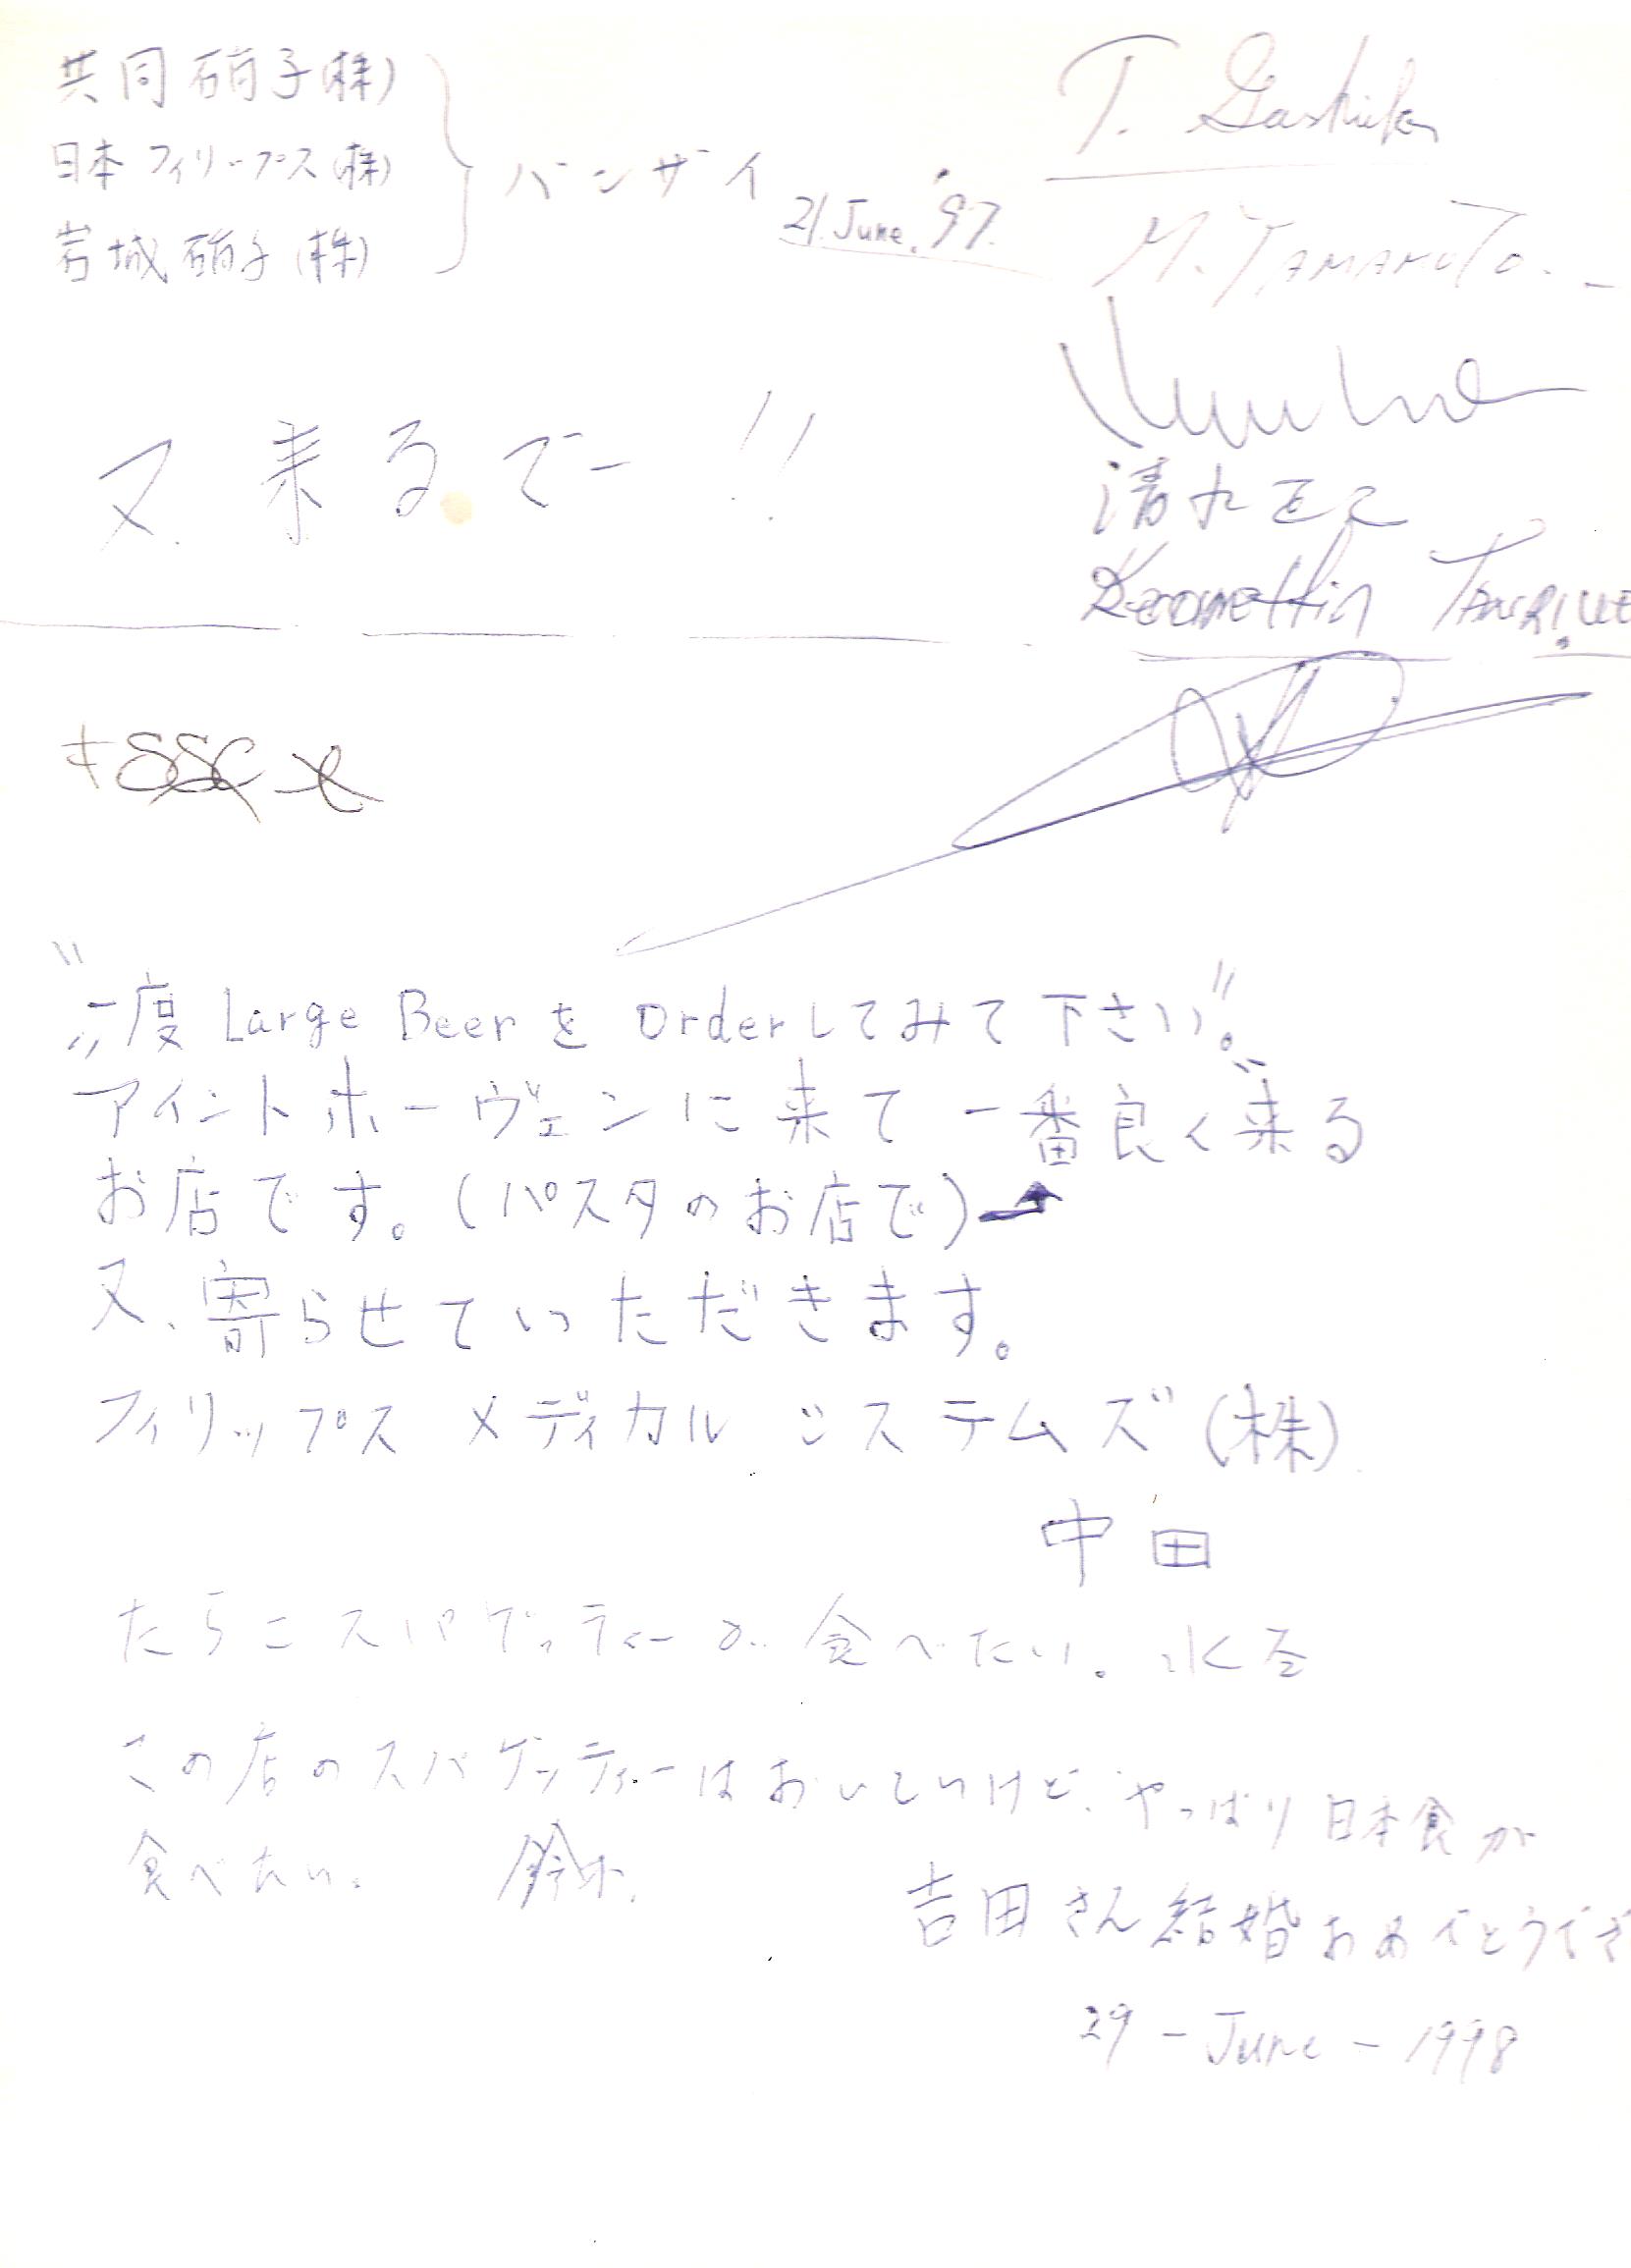 共同硝子(株)
日本フィリープス(株)
岩城硝子(株)
バンザイ
21. June. '97.
M. YAMAMOTO.
又来るでー!!
清水
"一度 Large Beer を Order してみて下さい。"
アイントホーヴェンに来て一番良く来る
お店です。(パスタのお店で)
又、寄らせていただきます。
フィリップス メディカル システムズ(株)
中田
たらこスパゲッティーが食べたい。
この店のスパゲッティーはおいしいけど、やっぱり日本食が
食べたい。 鈴木.
吉田さん結婚おめでとうござ
29 - June - 1998